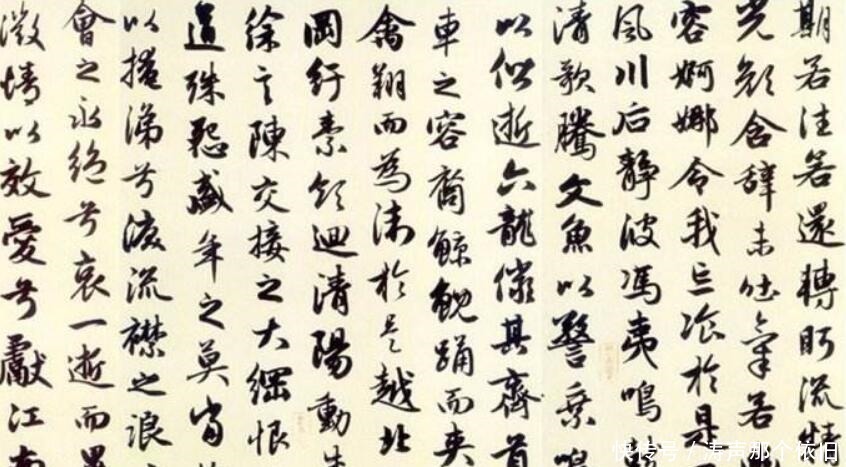 期若往若還轉眄流
光顔含辭未吐氣若
容婀娜令我忘飡於是
風川后靜波馮夷鳴
清歌騰文魚以警乘鳴
以偕逝六龍儼其齊首
車之容裔鯨鯢踊而夾
禽翔而為衛於是越北
岡紆素領迴清陽動朱
徐言陳交接之大綱恨
道殊怨盛年之莫當
以掩涕兮淚流襟之浪
會之永絕兮哀一逝而異
微情以效愛兮獻江南
快传号/涛声那个依旧